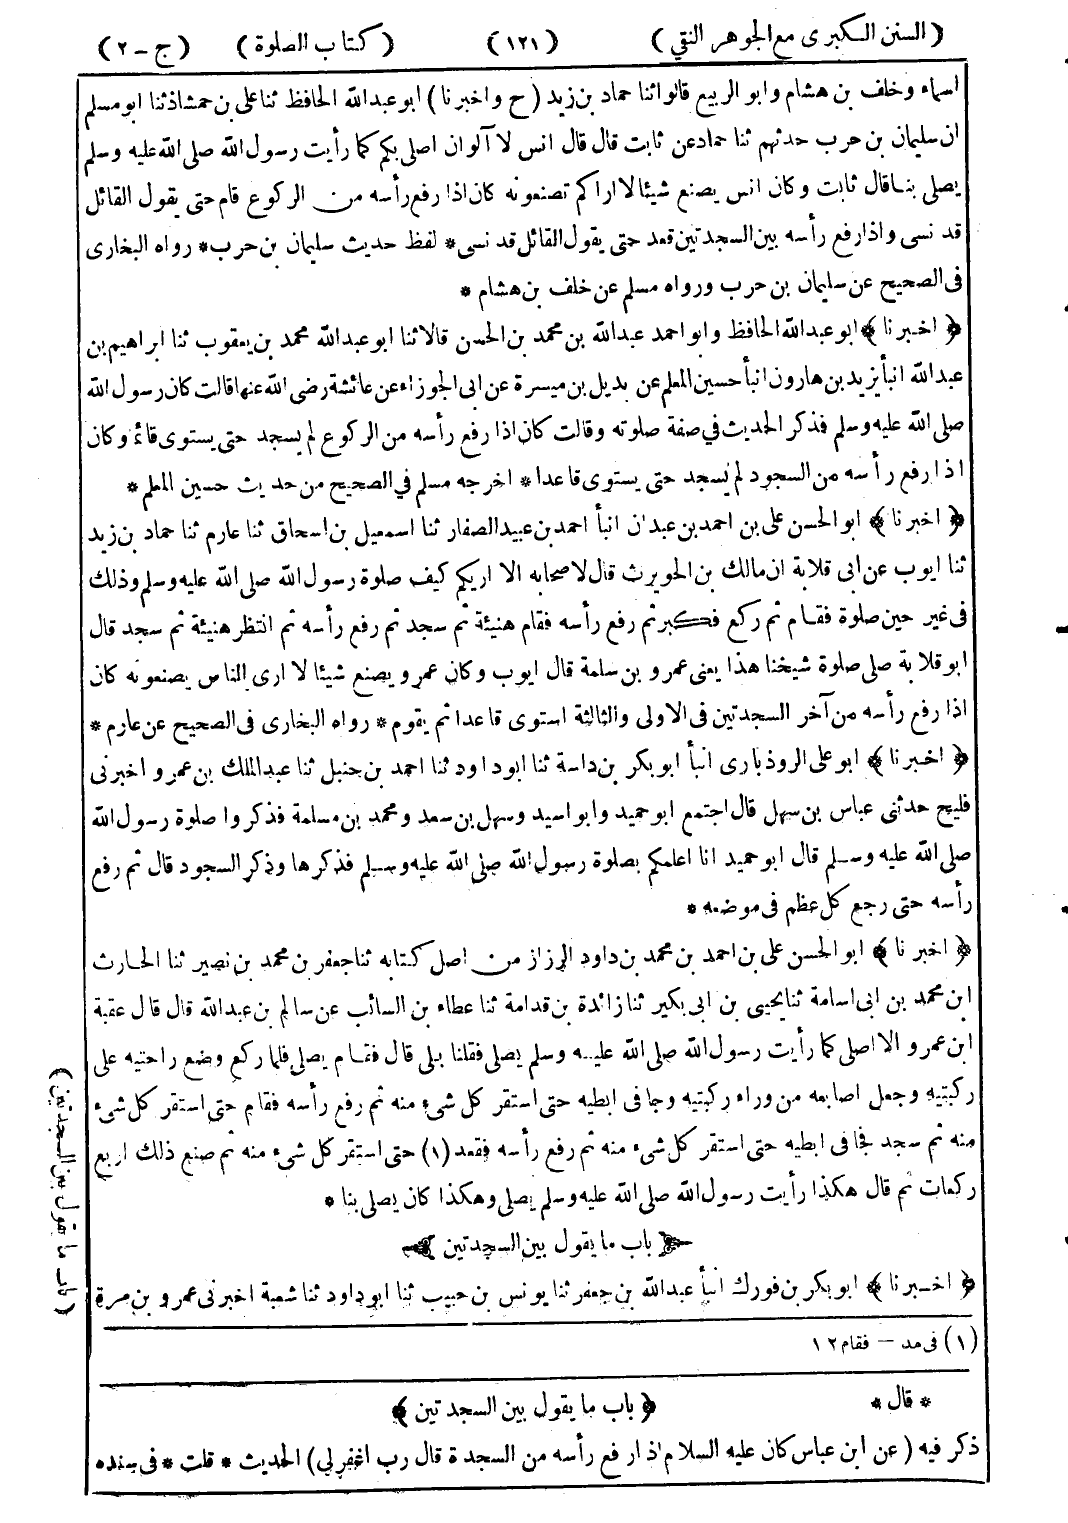 (السنن الكبرى مع الجوهر النقي) (١٢١) (كتاب الصلوة) (ج-٢)
اسماء وخلف بن هشام وابو الربيع قالوا ثنا حماد بن زيد (ح واخبرنا) ابو عبدالله الحافظ ثنا على بن حمشاذ ثنا ابو مسلم
ان سليمان بن حرب حدثهم ثنا حماد عن ثابت قال قال انس لا آلو ان اصلى بكم كما رأيت رسول الله صلى الله عليه وسلم
يصلى بنا قال ثابت وكان انس يصنع شيئا لا اراكم تصنعونه كان اذا رفع رأسه من الركوع قام حتى يقول القائل
قد نسى واذا رفع رأسه بين السجدتين قعد حتى يقول القائل قد نسى * لفظ حديث سليمان بن حرب * رواه البخارى
فى الصحيح عن سليمان بن حرب ورواه مسلم عن خلف بن هشام *
﴿ اخبرنا ﴾ ابو عبدالله الحافظ وابو احمد عبدالله بن محمد بن الحسن قالا ثنا ابو عبدالله محمد بن يعقوب ثنا ابراهيم بن
عبدالله انبأ يزيد بن هارون انبأ حسين المعلم عن بديل بن ميسرة عن ابى الجوزاء عن عائشة رضى الله عنها قالت كان رسول الله
صلى الله عليه وسلم فذكر الحديث فى صفة صلوته وقالت كان اذا رفع رأسه من الركوع لم يسجد حتى يستوى قائما وكان
اذا رفع رأسه من السجود لم يسجد حتى يستوى قاعدا * اخرجه مسلم فى الصحيح من حديث حسين المعلم *
﴿ اخبرنا ﴾ ابو الحسن على بن احمد بن عبدان انبأ احمد بن عبيد الصفار ثنا اسمعيل بن اسحاق ثنا عارم ثنا حماد بن زيد
ثنا ايوب عن ابى قلابة ان مالك بن الحويرث قال لاصحابه الا اريكم كيف صلوة رسول الله صلى الله عليه وسلم وذلك
فى غير حين صلوة فقام ثم ركع فكبر ثم رفع رأسه فقام هنيئة ثم سجد ثم رفع رأسه ثم انتظر هنيئة ثم سجد قال
ابو قلابة صلى صلوة شيخنا هذا يعنى عمرو بن سلمة قال ايوب وكان عمرو يصنع شيئا لا ارى الناس يصنعونه كان
اذا رفع رأسه من آخر السجدتين فى الاولى والثالثة استوى قاعدا ثم يقوم * رواه البخارى فى الصحيح عن عارم *
﴿ اخبرنا ﴾ ابو على الروذبارى انبأ ابو بكر بن داسة ثنا ابو داود ثنا احمد بن حنبل ثنا عبدالملك بن عمرو اخبرنى
فليح حدثنى عباس بن سهل قال اجتمع ابو حميد وابو اسيد وسهل بن سعد ومحمد بن مسلمة فذكروا صلوة رسول الله
صلى الله عليه وسلم قال ابو حميد انا اعلمكم بصلوة رسول الله صلى الله عليه وسلم فذكرها وذكر السجود قال ثم رفع
رأسه حتى رجع كل عظم فى موضعه *
﴿ اخبرنا ﴾ ابو الحسن على بن احمد بن محمد بن داود الرزاز من اصل كتابه ثنا جعفر بن محمد بن نصير ثنا الحارث
ابن محمد بن ابى اسامة ثنا يحيى بن ابى بكير ثنا زائدة بن قدامة ثنا عطاء بن السائب عن سالم بن عبدالله قال قال عقبة
ابن عمرو الا اصلى كما رأيت رسول الله صلى الله عليه وسلم يصلى فقلنا بلى قال فقام يصلى فلما ركع وضع راحتيه على
ركبتيه وجعل اصابعه من وراء ركبتيه وجافى ابطيه حتى استقر كل شىء منه ثم رفع رأسه فقام حتى استقر كل شىء
منه ثم سجد فجافى ابطيه حتى استقر كل شىء منه ثم رفع رأسه فقعد (١) حتى استقر كل شىء منه ثم صنع ذلك اربع
ركعات ثم قال هكذا رأيت رسول الله صلى الله عليه وسلم يصلى وهكذا كان يصلى بنا *
باب ما يقول بين السجدتين
﴿ اخبرنا ﴾ ابو بكر بن فورك انبأ عبدالله بن جعفر ثنا يونس بن حبيب ثنا ابو داود ثنا شعبة اخبرنى عمرو بن مرة
(باب ما يقول بين السجدتين)
(١) فى مد — فقام ١٢
* قال * ﴿ باب ما يقول بين السجدتين ﴾
ذكر فيه (عن ابن عباس كان عليه السلام اذا رفع رأسه من السجدة قال رب اغفر لى) الحديث * قلت * فى سنده